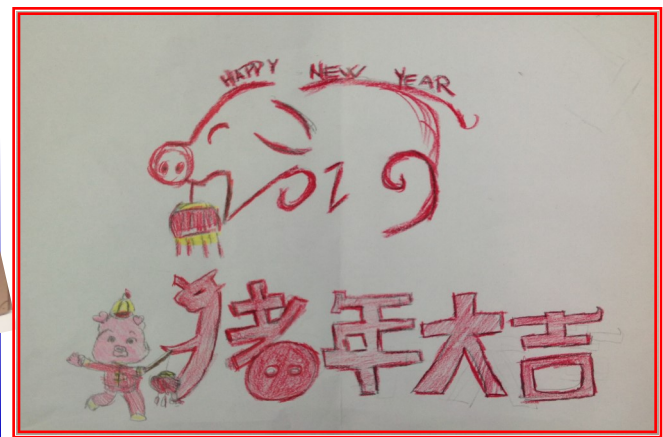 HAPPY NEW YEAR
2019
猪年大吉